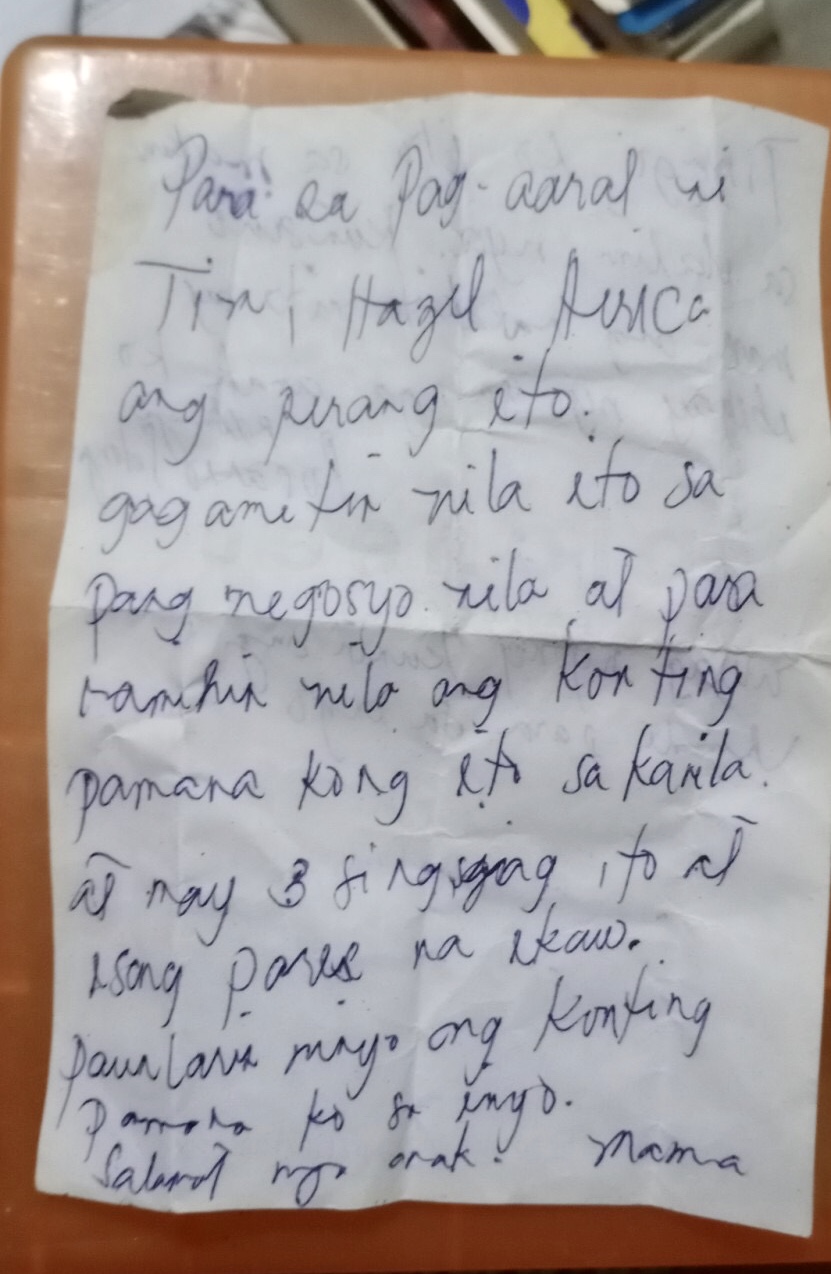 Para sa Pag-aaral ni
Tin, Hazel
ang perang ito.
gagamitin nila ito sa
pang negosyo nila at para
ramihin nila ang Konting
pamana kong ito sa kanila.
at may 3 ito at
isang pares na ikaw.
paunlarin ninyo ang Konting
pamana ko sa inyo.
Salamat mga anak. mama